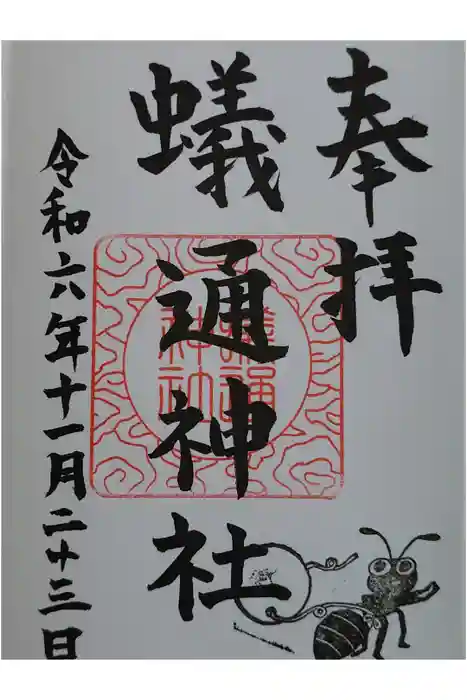 奉拝
蟻通神社
令和六年十一月二十三日
蟻通
神社